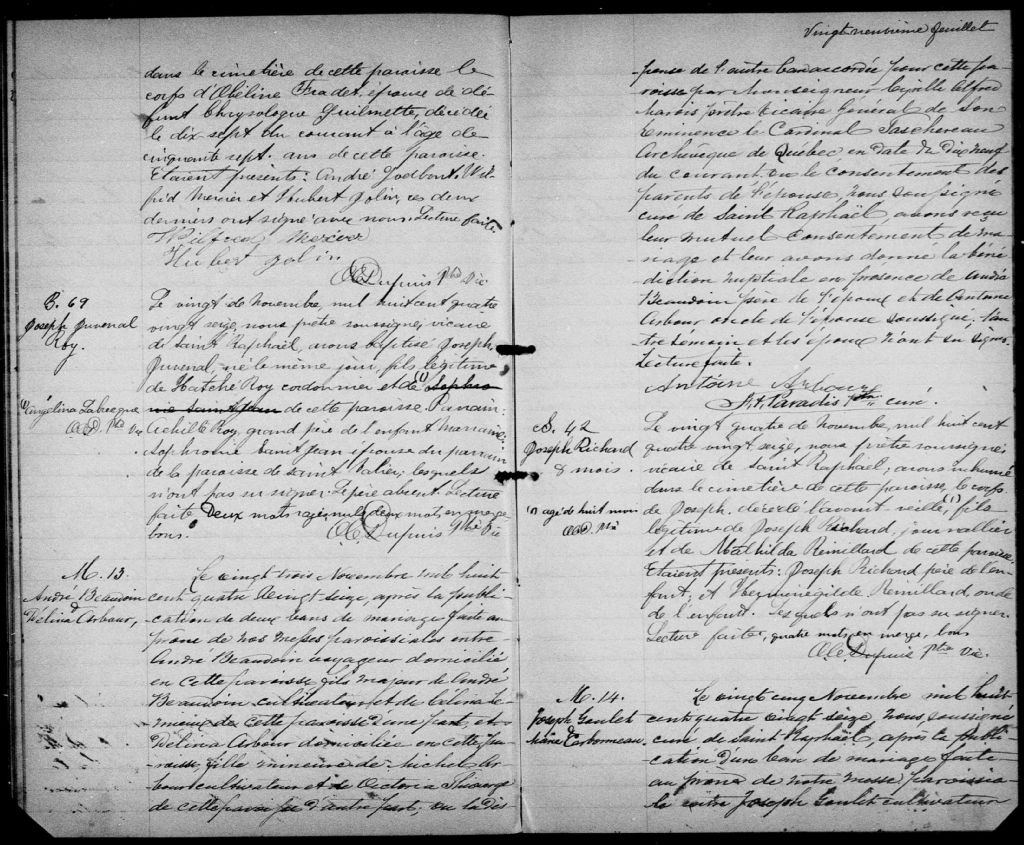 dans le cimetière de cette paroisse le
corps d'Obéline Fradet, épouse de dé-
funt Chrysologue Guilmette, décédée
le dix-sept du courant à l'âge de
cinquante sept ans de cette paroisse.
Etaient présents: André Godbout, Wil-
frid Mercier et Hubert Jolin, ces deux
derniers ont signé avec nous. Lecture faite.
Wilfrid Mercier
Hubert Jolin
Dupuis Ptre Vic
B. 69
Joseph Juvenal
Roy.
(1) Angelina Labrecque
Ptre Vic
Le vingt de Novembre, mil huit cent quatre
vingt seize, nous prêtre soussigné, vicaire
de Saint Raphaël, avons baptisé Joseph,
Juvenal, né le même jour, fils légitime
de Roy cordonnier et de (1) Sophro-
nie Saint Jean de cette paroisse. Parrain:
Achille Roy, grand père de l'enfant Marraine:
Sophronie Saint Jean épouse du parrain
de la paroisse de Saint Valier; lesquels
n'ont pas su signer. Le père absent. Lecture
faite. Deux mots rayés nuls, deux mots en marge
bons.
Dupuis Ptre Vic
M. 13.
André Beaudoin
&
Délina Arbour,
Le vingt trois Novembre mil huit
cent quatre vingt seize, après la publi-
cation de deux bans de mariage faite au
prône de nos messes paroissiales entre
André Beaudoin voyageur domicilié
en cette paroisse fils majeur de André
Beaudoin cultivateur et de Célina Le-
mieux de cette paroisse d'une part, et
Délina Arbour domiciliée en cette pa-
roisse, fille mineure de Michel Ar-
bour cultivateur et de
de cette paroisse d'autre part, vu la dis
Vingt neuvième feuillet
pense de l'autre ban accordée pour cette pa-
roisse par Monseigneur Cyrille Alfred
Marois prêtre Vicaire Général de Son
Eminence le Cardinal Taschereau
Archevêque de Québec en date du dix neuf
du courant, vu le consentement des
parents de l'épouse, nous soussigné
curé de Saint Raphaël, avons reçu
leur mutuel consentement de ma-
riage et leur avons donné la béné-
diction nuptiale en présence de André
Beaudoin père de l'époux et de Antoine
Arbour oncle de l'épouse soussigné; l'au-
tre témoin et les époux n'ont su signer.
Lecture faite.
Antoine Arbour
Paradis Ptre curé.
S. 42
Joseph Richard
8 mois.
(1) agé de huit mois
Ptre Vic
Le vingt quatre de Novembre, mil huit cent
quatre vingt seize, nous prêtre soussigné,
vicaire de Saint Raphaël, avons inhumé
dans le cimetière de cette paroisse, le corps
de Joseph, décédé l'avant-veille, (1) fils
légitime de Joseph Richard, journallier
et de Mathilda Rémillard de cette paroisse.
Etaient présents: Joseph Richard père de l'en-
fant; et Herménégilde Rémillard, oncle
de l'enfant. Lesquels n'ont pas su signer.
Lecture faite, quatre mots en marge, bons
Dupuis Ptre Vic.
M. 14.
Joseph Goulet
&
Marie Carbonneau.
Le vingt cinq Novembre mil huit
cent quatre vingt seize, Nous, soussigné
curé de Saint Raphaël, après la publi-
cation d'un ban de mariage faite
au prône de notre messe paroissia-
le entre Joseph Goulet cultivateur